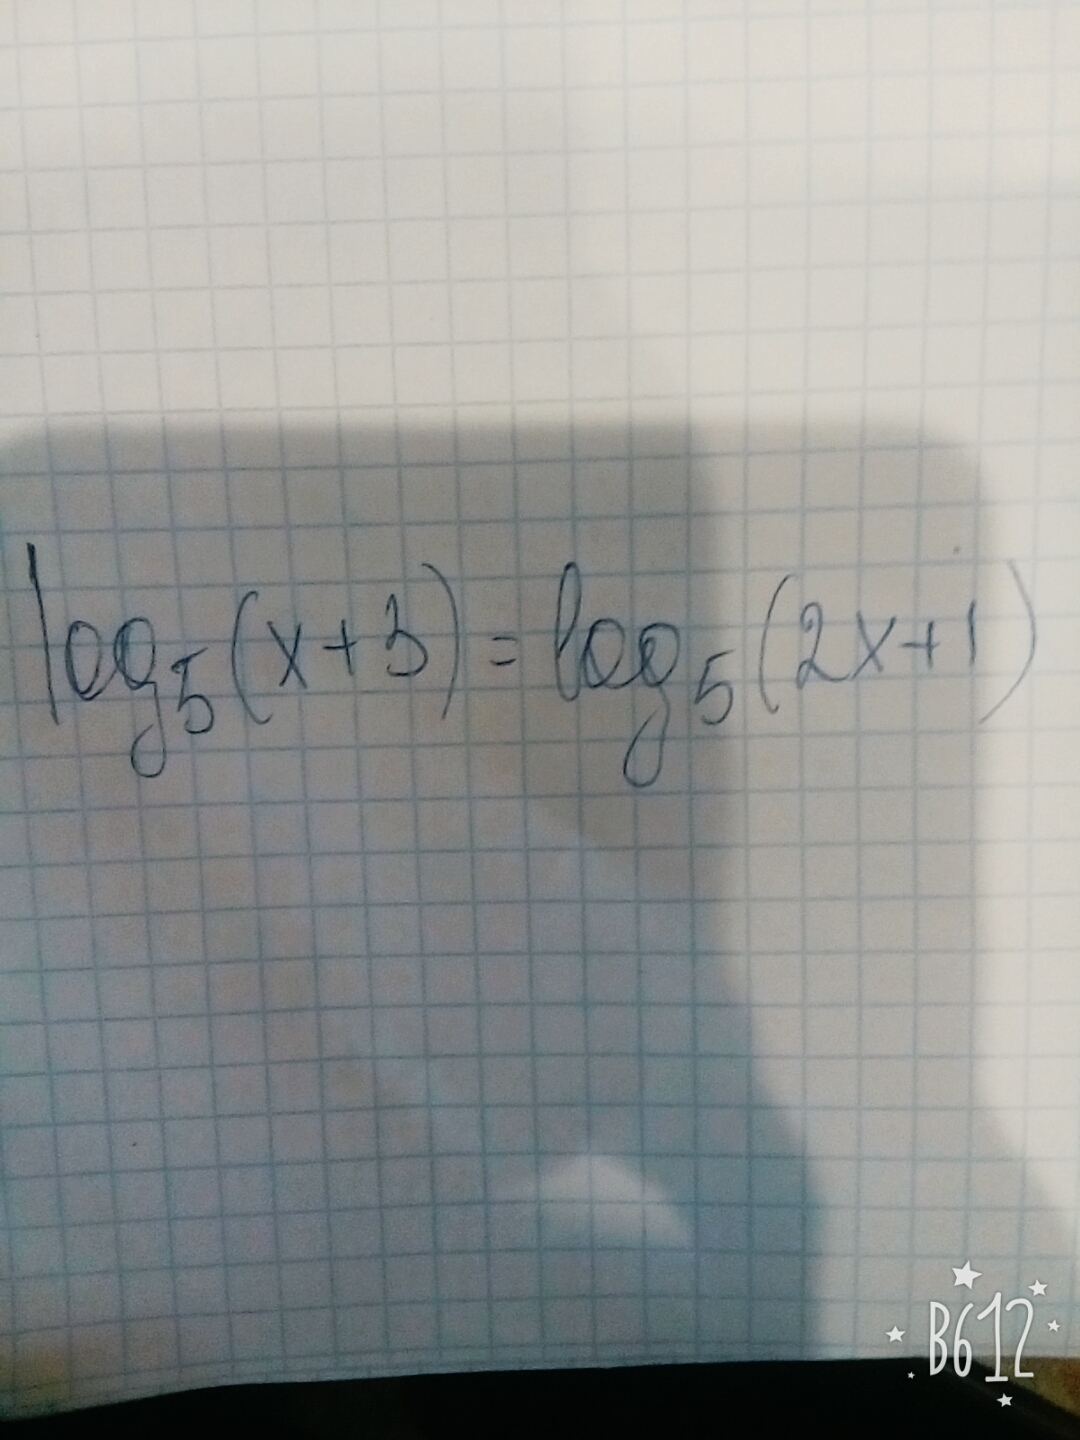 log₅(x+3)=log₅(2x+1)
B612